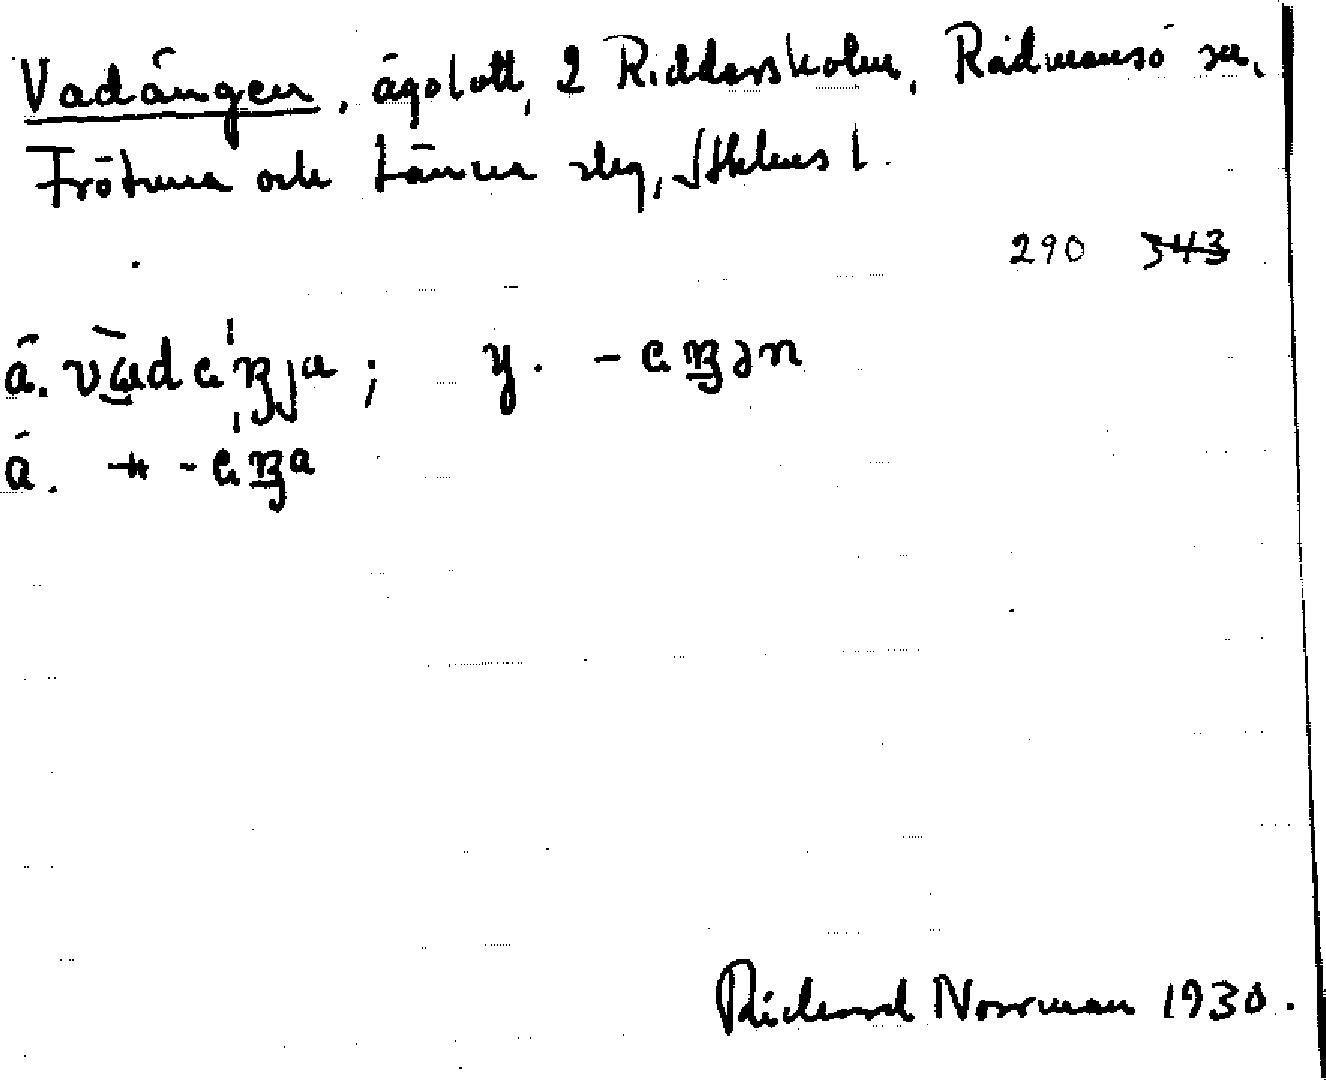 Vadängen, ägolott, 2 Riddersholm, Rådmansö sn,
Frötuna och Länna slg, Sthlms l.
290 343
ä. vad
ä.
y.
Rickard Norrman 1930.